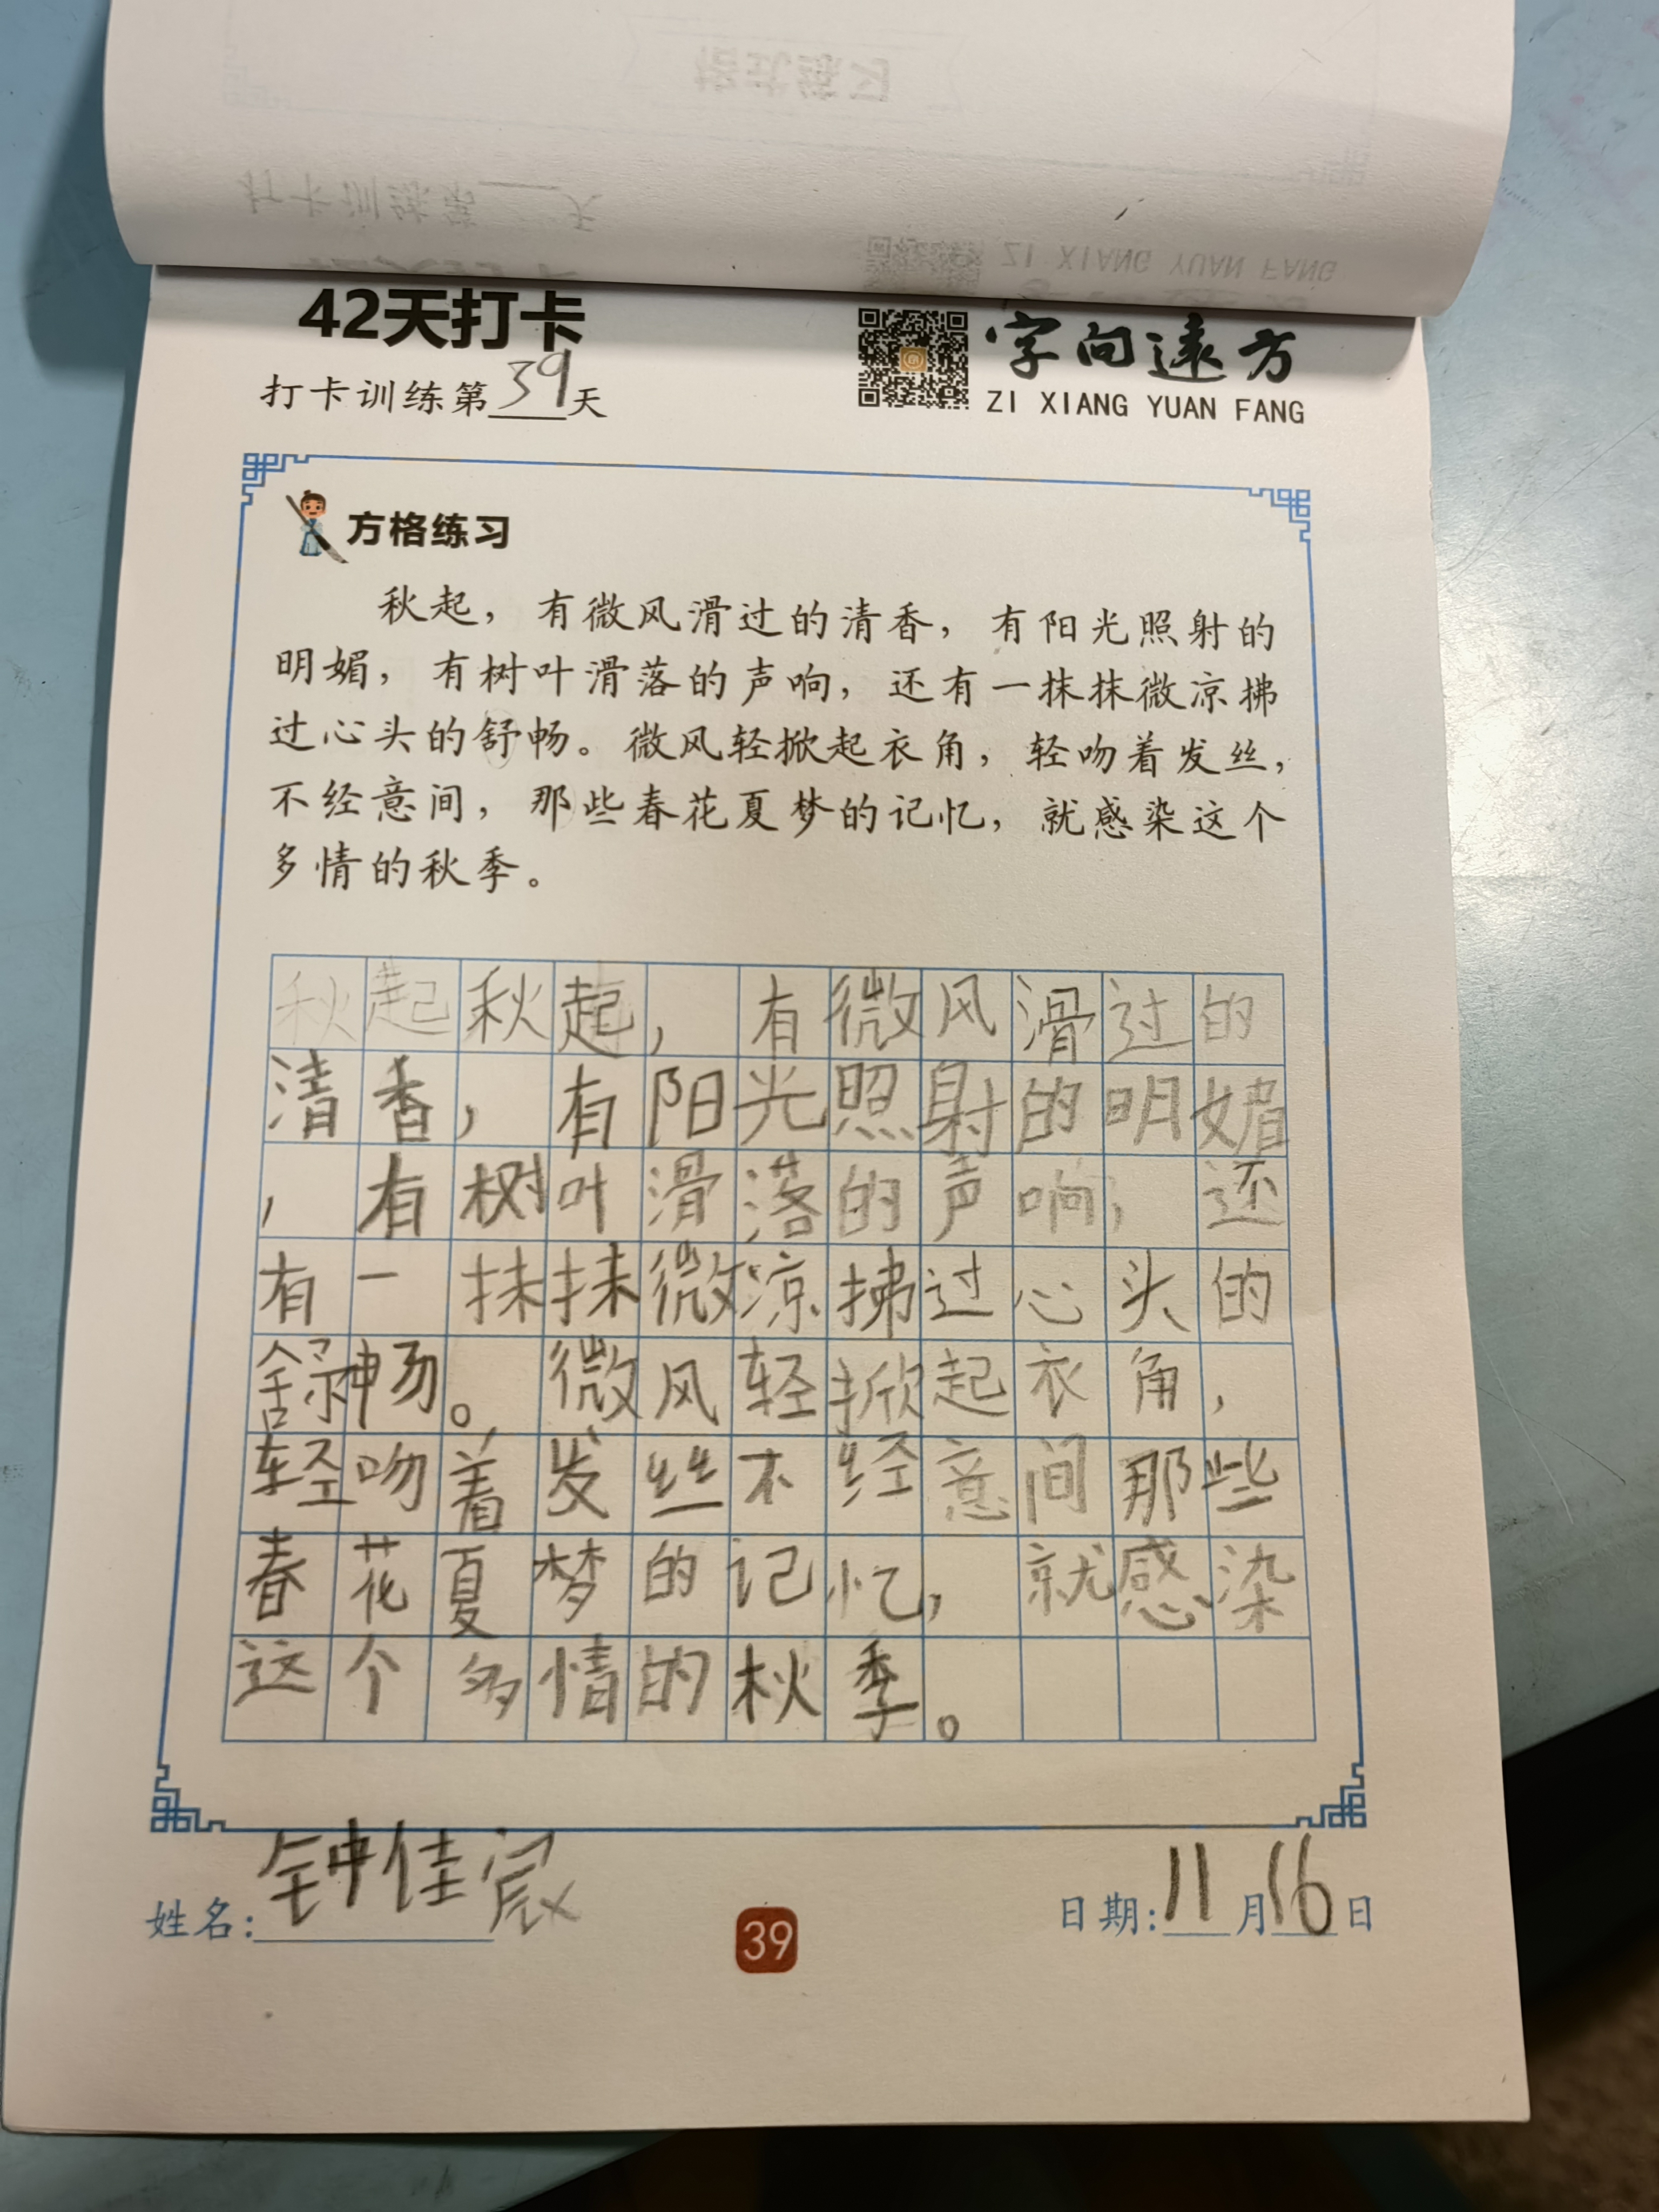 42天打卡
打卡训练第39天
字向远方
ZI XIANG YUAN FANG
方格练习
秋起，有微风滑过的清香，有阳光照射的
明媚，有树叶滑落的声响，还有一抹抹微凉拂
过心头的舒畅。微风轻掀起衣角，轻吻着发丝，
不经意间，那些春花夏梦的记忆，就感染这个
多情的秋季。
秋起秋起，有微风滑过的
清香，有阳光照射的明媚
，有树叶滑落的声响，还
有一抹抹微凉拂过心头的
舒畅。微风轻掀起衣角，
轻吻着发丝不经意间那些
春花夏梦的记忆，就感染
这个多情的秋季。
姓名：钟佳宸
39
日期：11月16日